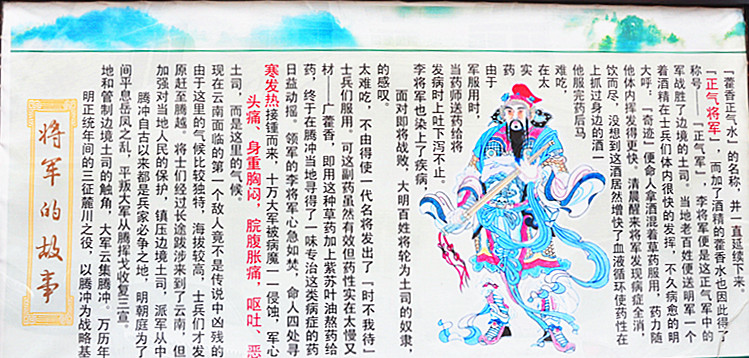 将军的故事
明正统年间的三征麓川之役，以腾冲为战略基
地和管制边境土司的触角，大军云集腾冲。万历年
间平息岳凤之乱，平叛大军从腾挥戈收复三宣。
腾冲自古以来都是兵家必争之地，明朝庭为了
加强对当地人民的保护，镇压边境土司，派军从中
原赶至腾越。将士们经过长途跋涉来到了云南，但
由于这里的气候比较独特，海拔较高，士兵们才发
现在云南面临的第一个敌人竟不是传说中凶残的
土司，而是这里的气候。
头痛、身重胸闷，脘腹胀痛，呕吐、恶
寒发热接踵而来，十万大军被病魔一一侵蚀，军心
日益动摇。领军的李将军心急如焚，命人四处寻
药，终于在腾冲当地寻得了一味专治这类病症的药
材——广藿香，即用这种草药加上紫苏叶油熬药给
士兵们服用。可这副药虽然有效但药性实在太慢又
太难吃，不由得使一代名将发出了「时不我待」
的感叹。
面对即将战败，大明百姓将轮为土司的奴隶，
李将军也染上了疾病，
发病时上吐下泻不止。
当药师送药给将
军服用时，
由于
药实
在太
难吃，
他服完药后马
上抓过身边的酒一
饮而尽，没想到这酒居然增快了血液循环使药性在
他体内挥发得更快。清晨醒来将军发现病症全消，
大呼，「奇迹」便命人拿酒混着草药服用，药力随
着酒精在士兵们体内很快的发挥，不久病愈的明
军战胜了边境的土司。当地老百姓便送明军一个
称号——「正气军」，李将军便是这正气军中的
「正气将军」，而加了酒精的藿香水也因此得了
「藿香正气水」的名称，并一直延续下来。